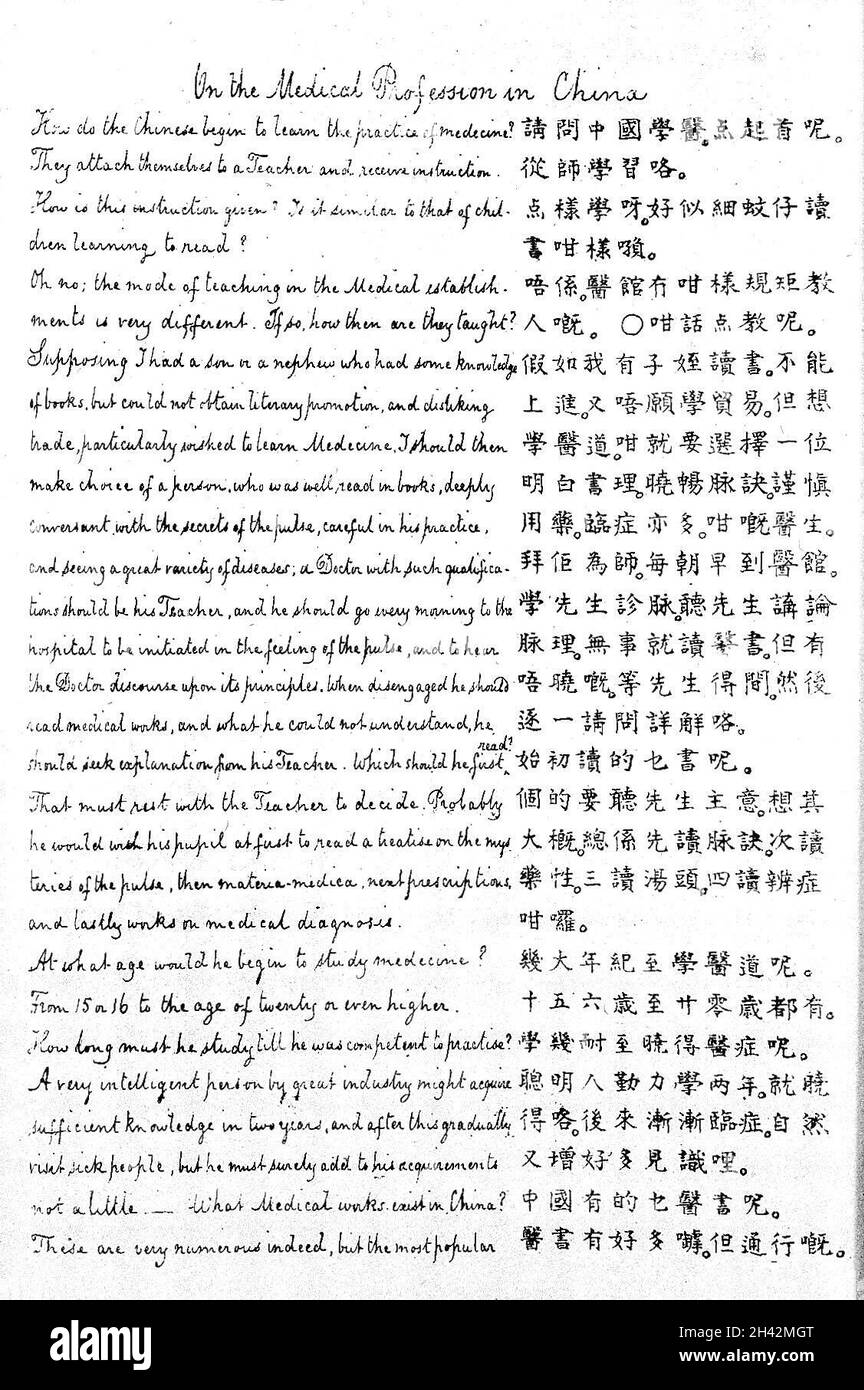 On the Medical Profession in China
How do the Chinese begin to learn the practice of medecine? 請問中國學醫。点起首呢。
They attach themselves to a Teacher and receive instruction. 從師學習咯。
How is this instruction given? Is it similar to that of chil- 点樣學呀。好似細蚊仔讀
dren learning to read? 書咁樣嗩。
Oh no; the mode of teaching in the Medical establish- 唔係。醫館冇咁樣規矩教
ments is very different. If so, how then are they taught? 人嘅。 〇咁話点教呢。
Supposing I had a son or a nephew who had some knowledge 假如我有子姪讀書。不能
of books, but could not obtain literary promotion, and disliking 上進。又唔願學貿易。但想
trade, particularly wished to learn Medecine, I should then 學醫道。咁就要選擇一位
make choice of a person, who was well read in books, deeply 明白書理。曉暢脉訣。謹慎
conversant with the secrets of the pulse, careful in his practice, 用藥。臨症亦多。咁嘅醫生。
and seeing a great variety of diseases; a Doctor with such qualifica- 拜佢為師。每朝早到醫館。
tions should be his Teacher, and he should go every morning to the 學先生診脉。聽先生講論
hospital to be initiated in the feeling of the pulse, and to hear 脉理。無事就讀醫書。但有
the Doctor discourse upon its principles. When disengaged he should 唔曉嘅。等先生得間。然後
read medical works, and what he could not understand, he 逐一請問詳解咯。
should seek explanation from his Teacher. Which should he first read? 始初讀的乜書呢。
That must rest with the Teacher to decide. Probably 個的要聽先生主意。想其
he would wish his pupil at first to read a treatise on the mys 大概。總係先讀脉訣。次讀
teries of the pulse, then materia-medica, next prescriptions, 藥性。三讀湯頭。四讀辨症
and lastly works on medical diagnosis. 咁囉。
At what age would he begin to study medecine? 幾大年紀至學醫道呢。
From 15 or 16 to the age of twenty or even higher. 十五六歲至廿零歲都有。
How long must he study till he was competent to practise? 學幾耐至曉得醫症呢。
A very intelligent person by great industry might acquire 聰明人勤力學两年。就曉
sufficient knowledge in two years, and after this gradually 得咯。後來漸漸臨症。自然
visit sick people, but he must surely add to his acquirements 又增好多見識哩。
not a little. — What Medical works exist in China? 中國有的乜醫書呢。
These are very numerous indeed, but the most popular 醫書有好多嘑。但通行嘅。
alamy
Image ID: 2H42MGT
www.alamy.com